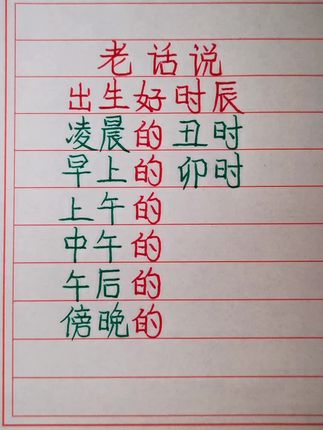 老话说
出生好时辰
凌晨的 丑时
早上的 卯时
上午的
中午的
午后的
傍晚的